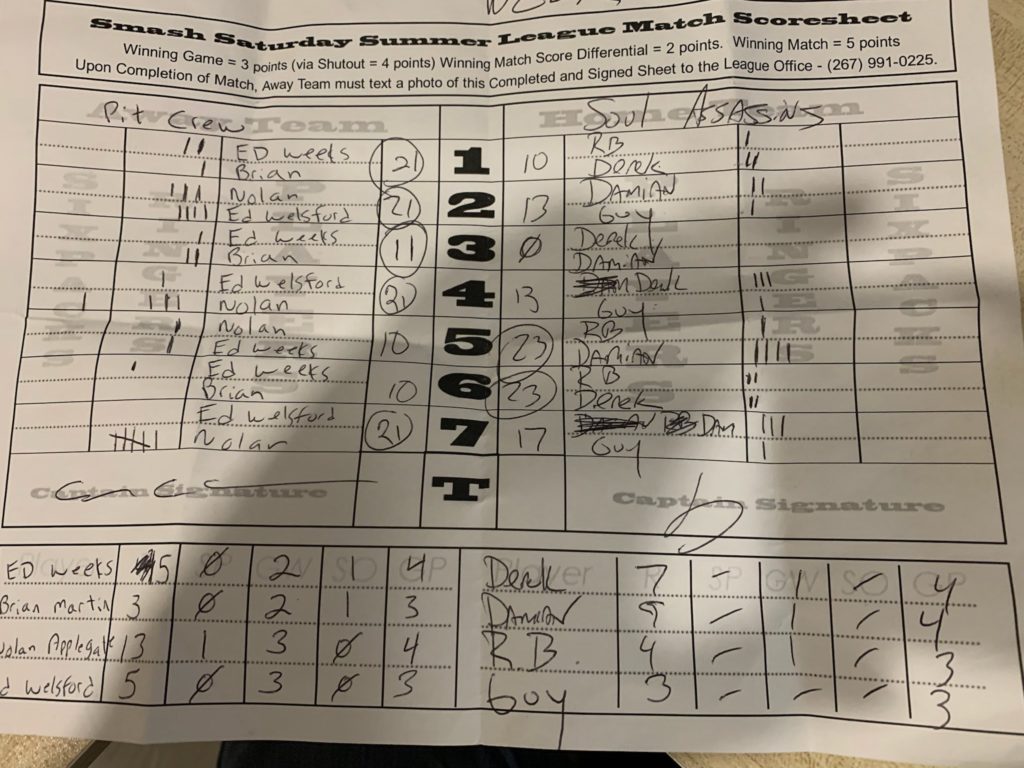 Smash Saturday Summer League Match Scoresheet
Winning Game = 3 points (via Shutout = 4 points) Winning Match Score Differential = 2 points. Winning Match = 5 points
Upon Completion of Match, Away Team must text a photo of this Completed and Signed Sheet to the League Office - (267) 991-0225.
Away Team Home Team
Pit Crew Soul Assassins
ED weeks RB
Brian 21 1 10 Derek
Nolan DAMIAN
Ed Welsford 21 2 13 Guy
Ed weeks Derek
Brian 11 3 Ø DAMIAN
Ed Welsford Derek
Nolan 21 4 13 Guy
Nolan RB
Ed weeks 10 5 23 DAMIAN
Ed weeks RB
Brian 10 6 23 Derek
Ed Welsford DAM
Nolan 21 7 17 Guy
SIXPACKS SINGERS PLAYERS PLAYERS SINGERS SIXPACKS
T
Captain Signature Captain Signature
Player R SP GW SO GP Player R SP GW SO GP
ED weeks 5 Ø 2 1 4 Derek 7 - 1 - 4
Brian Martin 3 Ø 2 1 3 DAMIAN 9 - 1 - 4
Nolan Applegate 13 1 3 Ø 4 R.B. 4 - 1 - 3
Ed Welsford 5 Ø 3 Ø 3 Guy 3 - - - 3